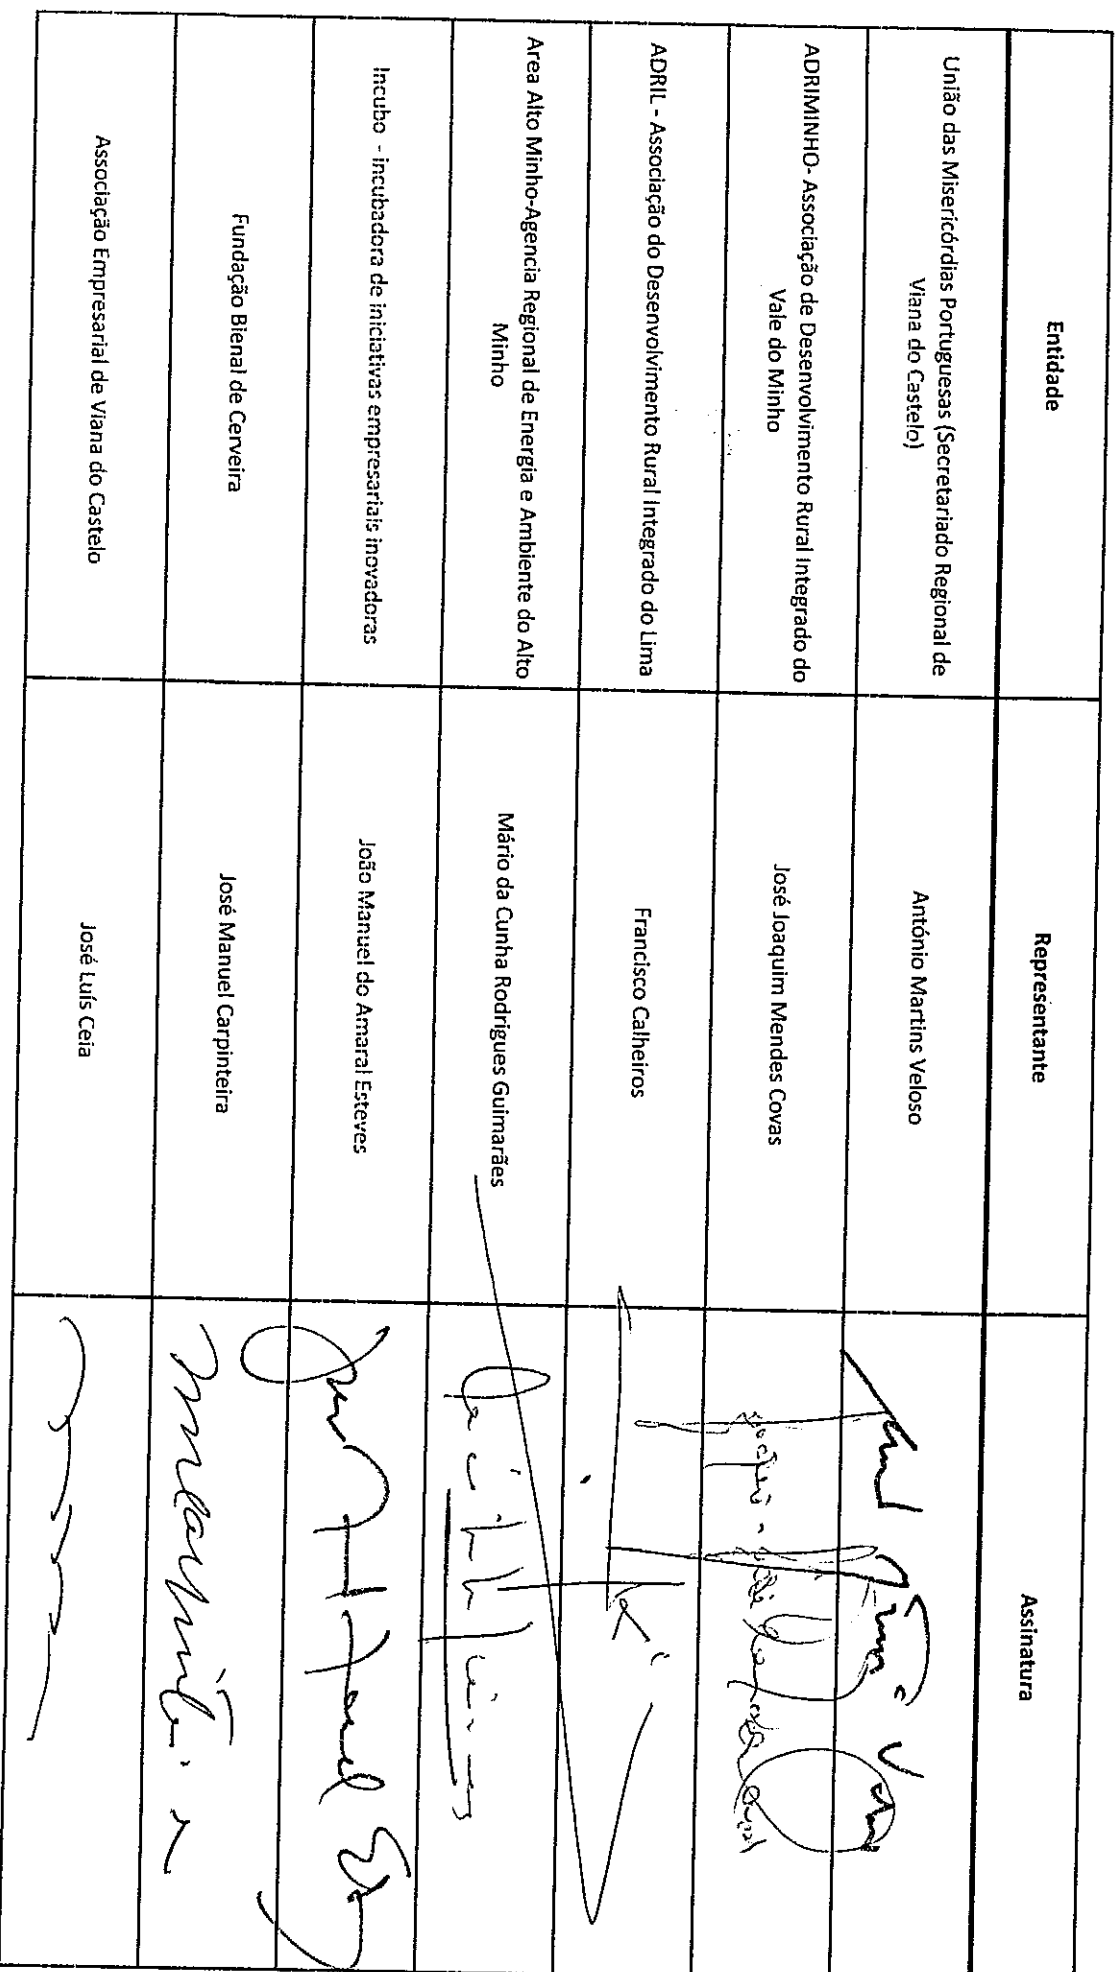 Entidade
Representante
Assinatura
União das Misericórdias Portuguesas (Secretariado Regional de
Viana do Castelo)
António Martins Veloso
ADRIMINHO- Associação de Desenvolvimento Rural Integrado do
Vale do Minho
José Joaquim Mendes Covas
ADRIL - Associação do Desenvolvimento Rural Integrado do Lima
Francisco Calheiros
Area Alto Minho-Agencia Regional de Energia e Ambiente do Alto
Minho
Mário da Cunha Rodrigues Guimarães
Incubo - incubadora de iniciativas empresariais inovadoras
João Manuel do Amaral Esteves
Fundação Bienal de Cerveira
José Manuel Carpinteira
Associação Empresarial de Viana do Castelo
José Luís Ceia